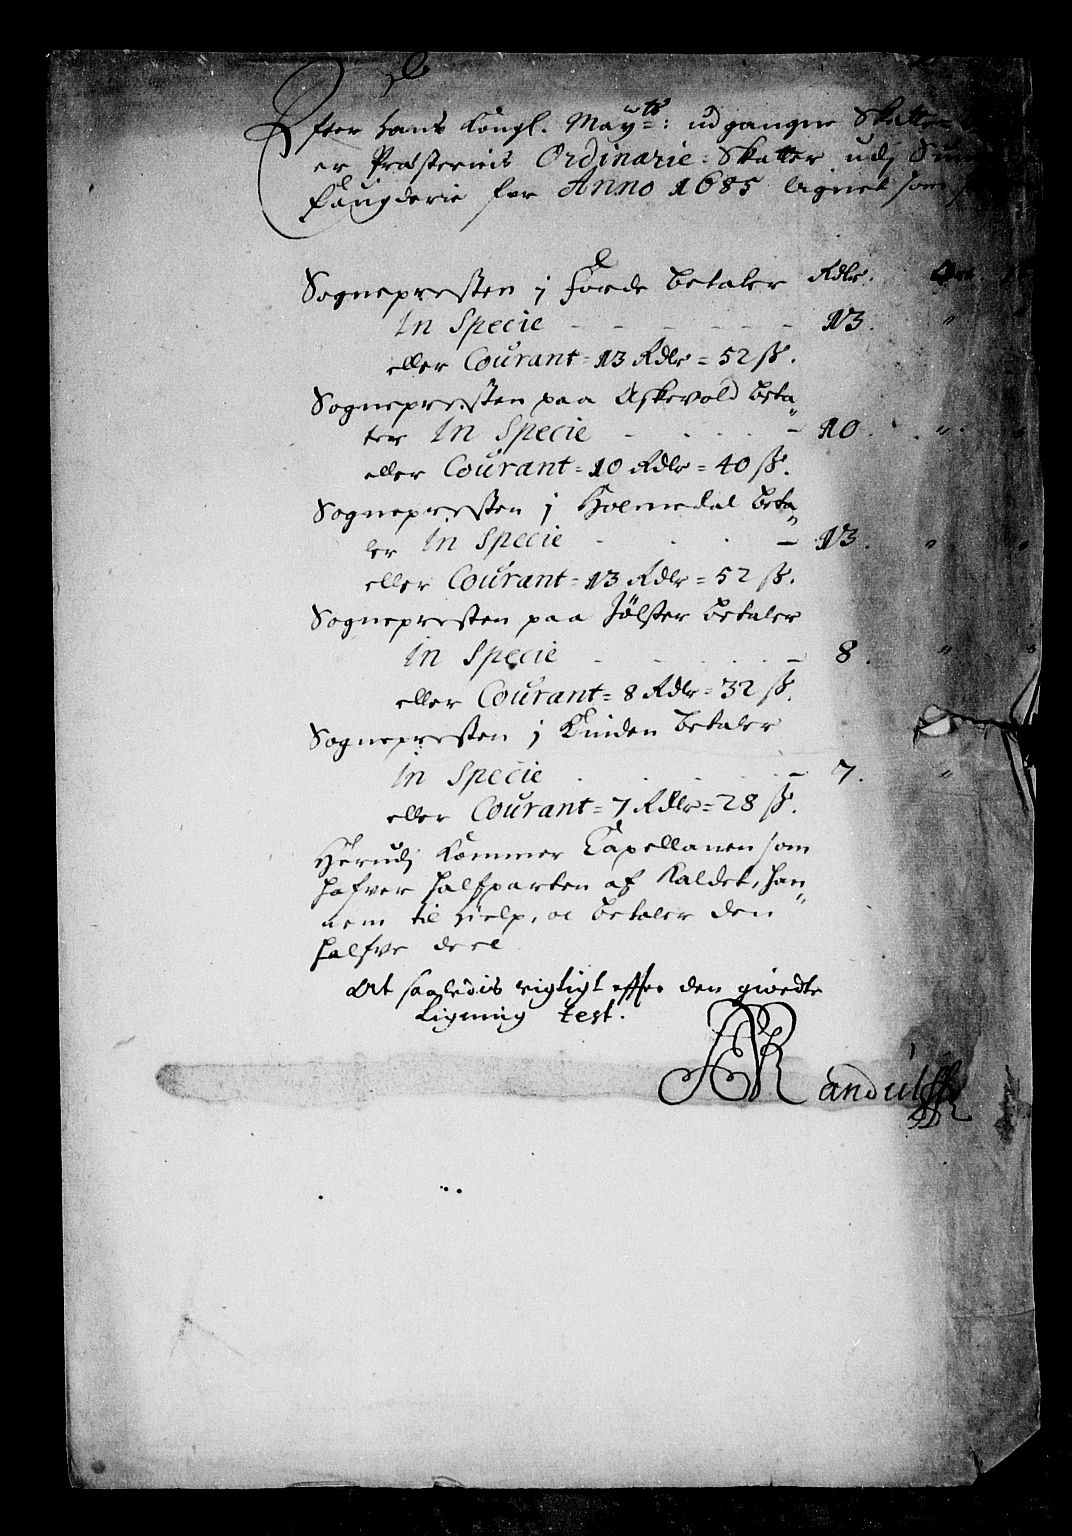 Efter Hans Kongl. May:ts: udgangne Skatte
er Præsternis Ordinarie Skatter udj Sun
fougderie for Anno 1685 lignet som
Sognepresten j Förde betaler Rdlr. Ort.
In Specie - - - - - - 13. "
eller Courant = 13 Rdlr = 52 ss.
Sognepresten paa Askevold beta"
ler In Specie - . . . - 10. "
eller Courant = 10 Rdlr = 40 ss.
Sognepresten j Holmedal beta"
ler In Specie - . . - 13. " "
eller Courant = 13 Rdlr = 52 ss.
Sognepresten paa Jölster betaler
In Specie . . . . - 8. "
eller Courant = 8 Rdlr = 32 ss.
Sognepresten j Kinden betaler
In Specie . . . . - 7. "
eller Courant = 7 Rdlr = 28 ss.
Herudj kommer Capellanen som
hafver halfparten af Kaldet, han"
nem til hielp, oc betaler den
halfve deel
At saaledis rigtigt efter den giordte
Ligning test.
Randulff